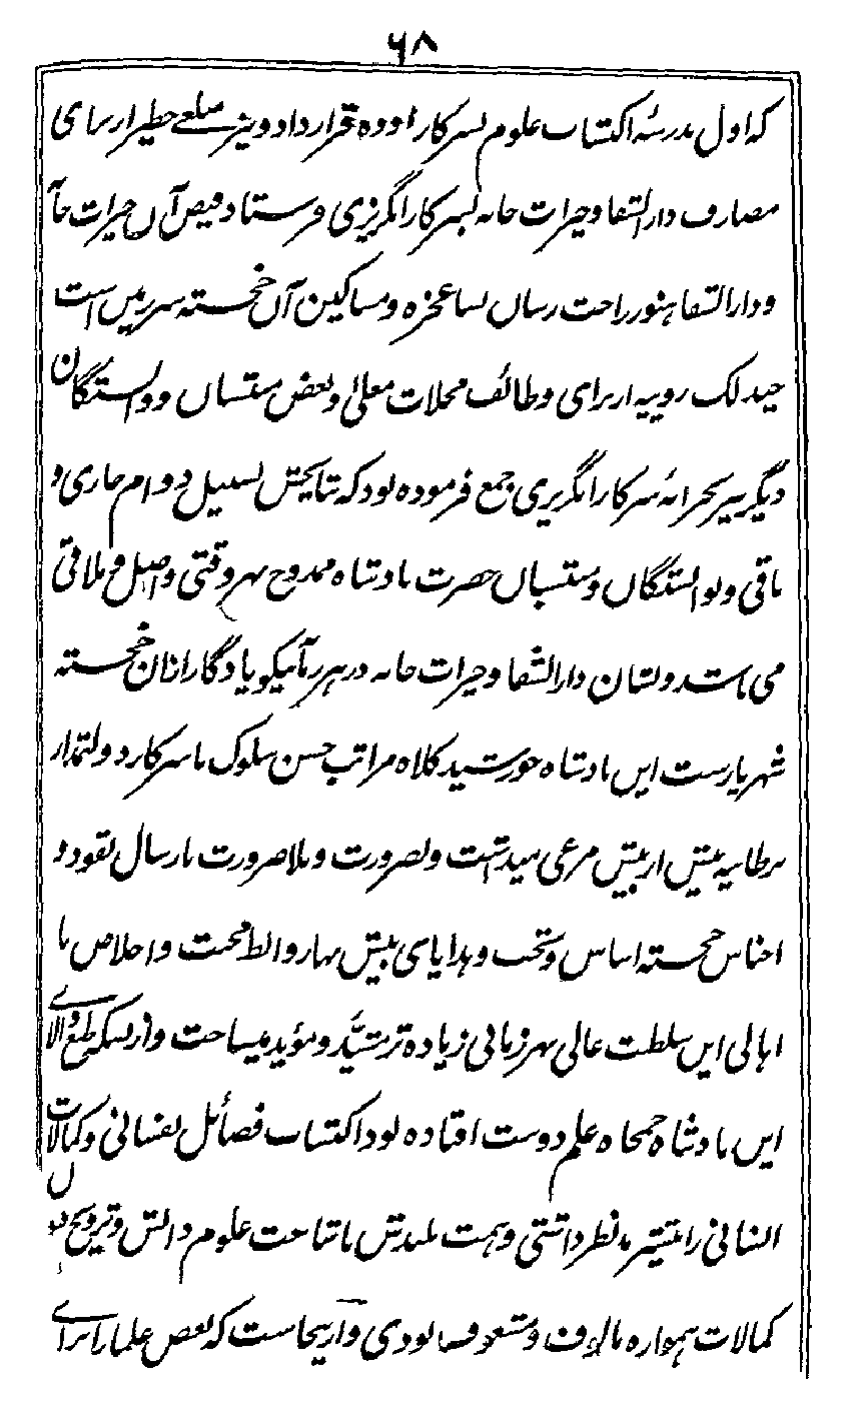 ۶۸
که اول مدرسهٔ اکتساب علوم بسرکار اوده قرار داد و نیز مبلغے خطیر از برای
مصارف دارالشفا و خیرات خانه بسرکار انگریزی فرستاد فیض آن خیرات خانه
و دارالشفا هنوز راحت رسان بسا عجزه و مساکین آن خجسته سرزمین است
چند لک روپیه از برای وظائف محلات معلیٰ و بعض منتسبان و وابستگان
دیگر نیز بخزانهٔ سرکار انگریزی جمع فرموده بود که نتایجش بسبیل دوام جاری و
باقی و بوابستگان و منتسبان حضرت بادشاه ممدوح بهر وقتی واصل و ملاقی
می باشد و بنشان دارالشفا و خیرات خانه در هر زمان نیکو یادگار ازان خجسته
شهریارست این بادشاه خورشید کلاه مراتب حسن سلوک با سرکار دولتمدار
برطانیه بیش از بیش مرعی میداشت و بضرورت و بلاضرورت بارسال نقود و
اجناس خجسته اساس و تحف و هدایای بیش بها روابط محبت و اخلاص با
اهالی این سلطنت عالی بهر زمانی زیاده تر مشیّد و مؤید میساخت و ازبسکه طبع والای
این بادشاه جمجاه علم دوست افتاده بود اکتساب فضائل نفسانی و کمالات
انسانی را بیشتر مدنظر داشتی و همت بلندش باشاعت علوم دانش و ترویج
کمالات همواره مالوف و مشعوف بودی و ازینجاست که بعض علما را برای